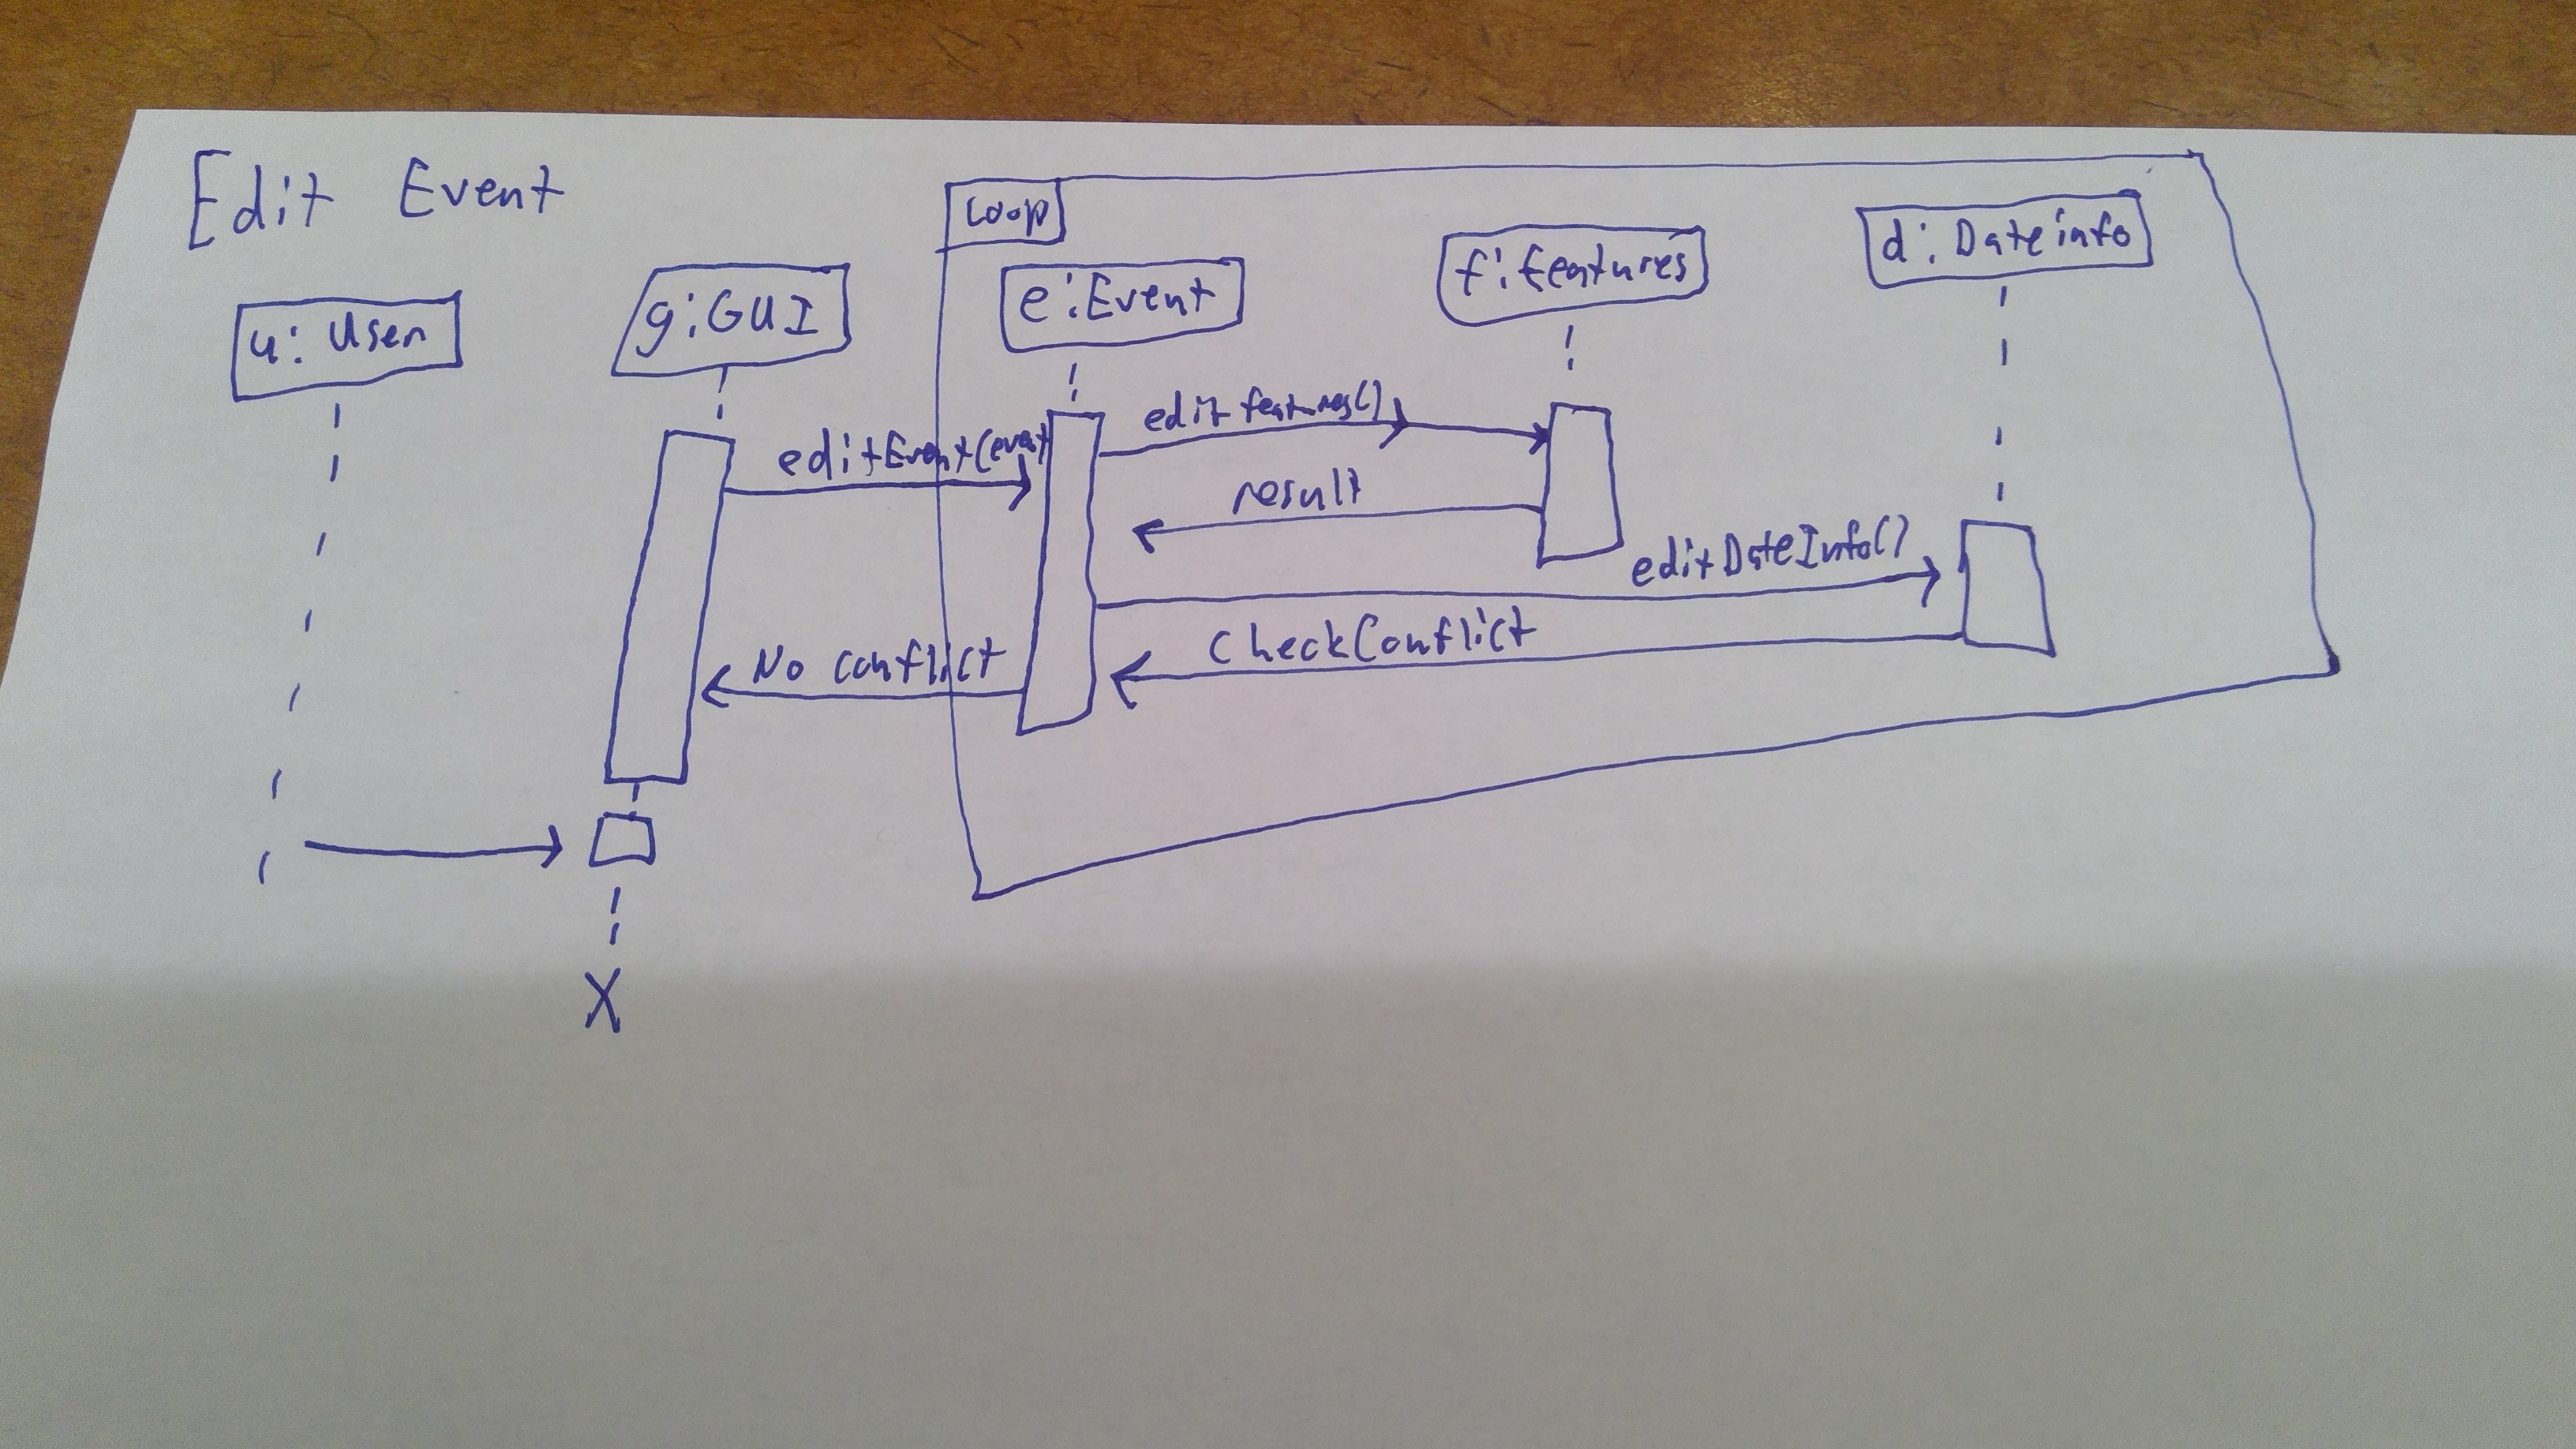 Edit Event
Loop
u: User
g:GUI
e:Event
f:features
d:Dateinfo
editEvent(event
edit features()
result
editDateInfo()
checkConflict
No conflict
X